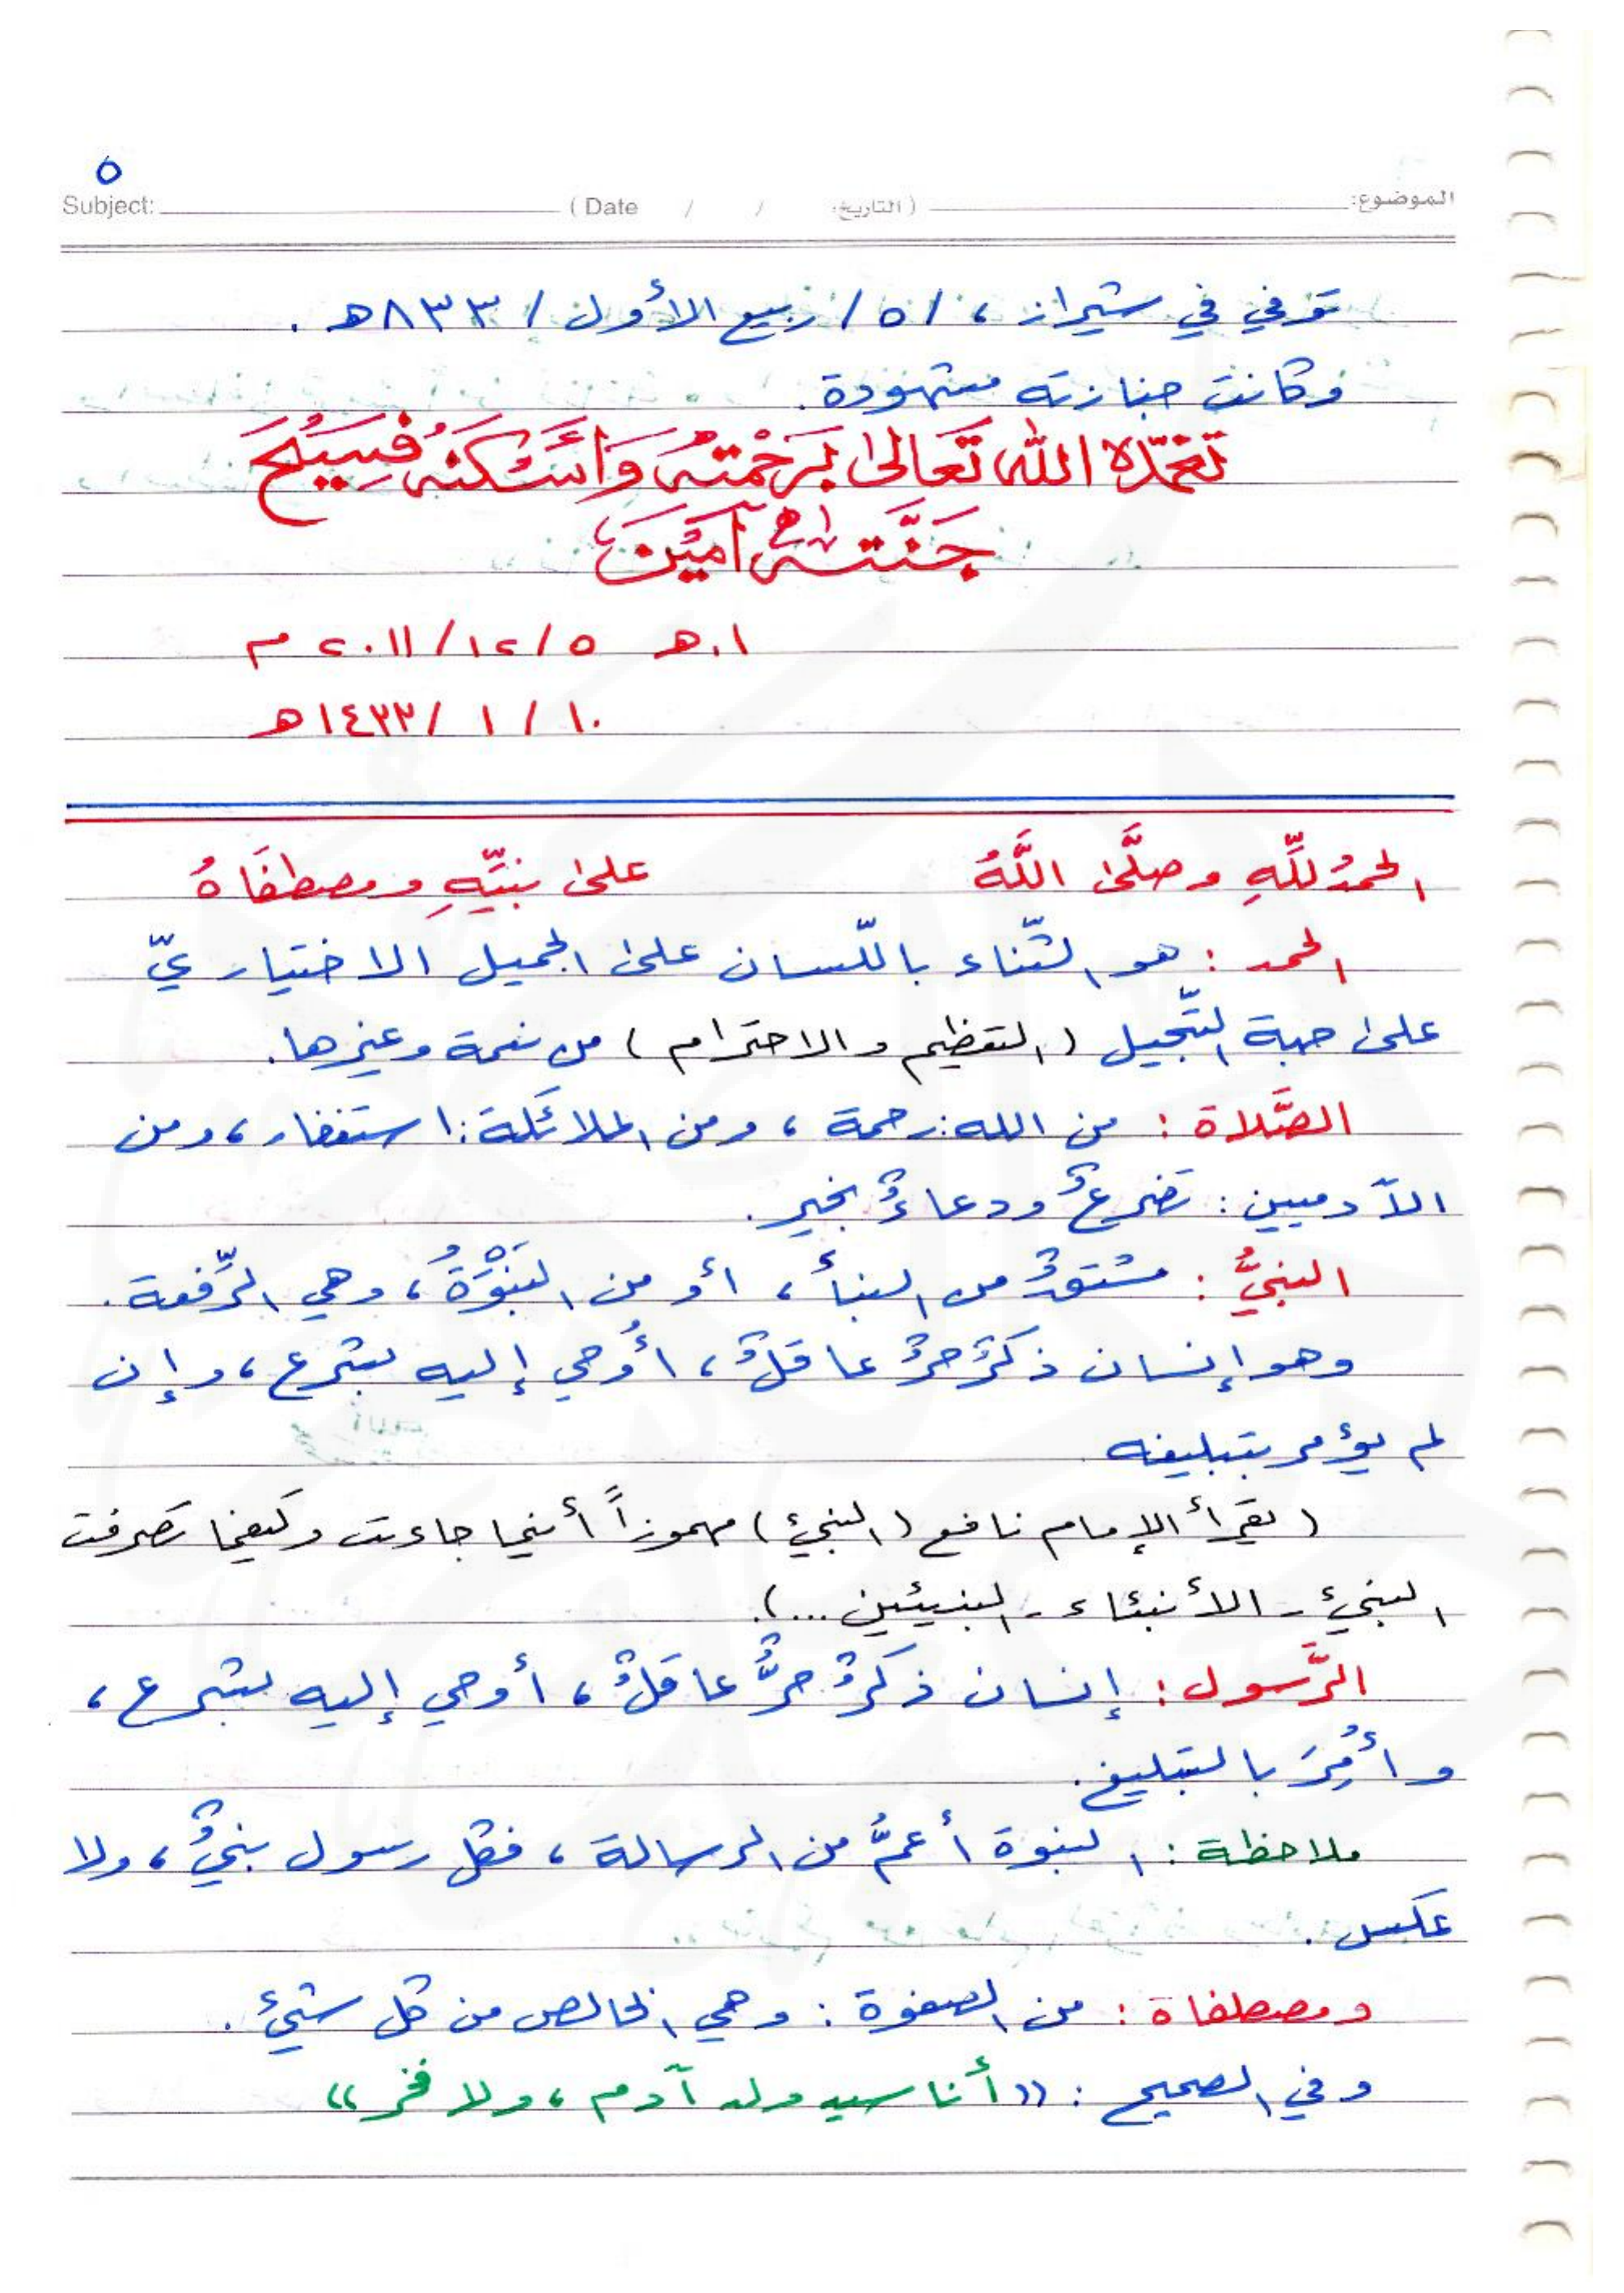 ٥
الموضوع: (التاريخ: / / Date ) Subject:
توفي في شيراز ، /٥/ ربيع الأول / ٨٣٣هـ .
وكانت جنازته مشهودة .
تغمّده الله تَعَالىٰ بِرَحْمَتِهِ وَأَسْكَنَهُ فَسِيحَ
جَنَّتِهِ آمِيْنَ
ا.هـ ٢٠١١/١٢/٥ م
١٠/ ١ /١٤٣٣هـ
الحمدُ للَّهِ وصلَّىٰ اللَّهُ على نبيِّهِ ومصطفَاهُ
الحمد : هو الثّناء باللّسان على الجميل الاختياريّ
على جهة التّبجيل (التعظيم والاحترام) من نعمة وغيرها.
الصَّلاة : من الله: رحمة ، ومن الملائكة: استغفار ، ومن
الآدميين : تضرعٌ ودعاءٌ بخير .
النبيُّ : مشتقٌ من النبأ ، أو من النَبْوَةُ ، وهي الرِّفعة .
وهو إنسان ذكرٌ حرٌ عاقلٌ ، أُوحي إليه بشرع ، وإن
لم يؤمر بتبليغه
(يقرأ الإمام نافع (النبيء) مهموزاً أينما جاءت وكيفما تصرفت
النبيء - الأنبئاء - النبيئين ...).
الرَّسول : إنسان ذكرٌ حرٌّ عاقلٌ ، أوحي إليه بشرع ،
وأُمِرَ بالتبليغ .
ملاحظة : النبوة أعمُّ من الرسالة ، فكل رسول نبيٌ ، ولا
عكس .
ومصطفاة : من الصفوة : وهي الخالص من كل شيء .
وفي الصحيح : ((أنا سيد ولد آدم ، ولا فخر))